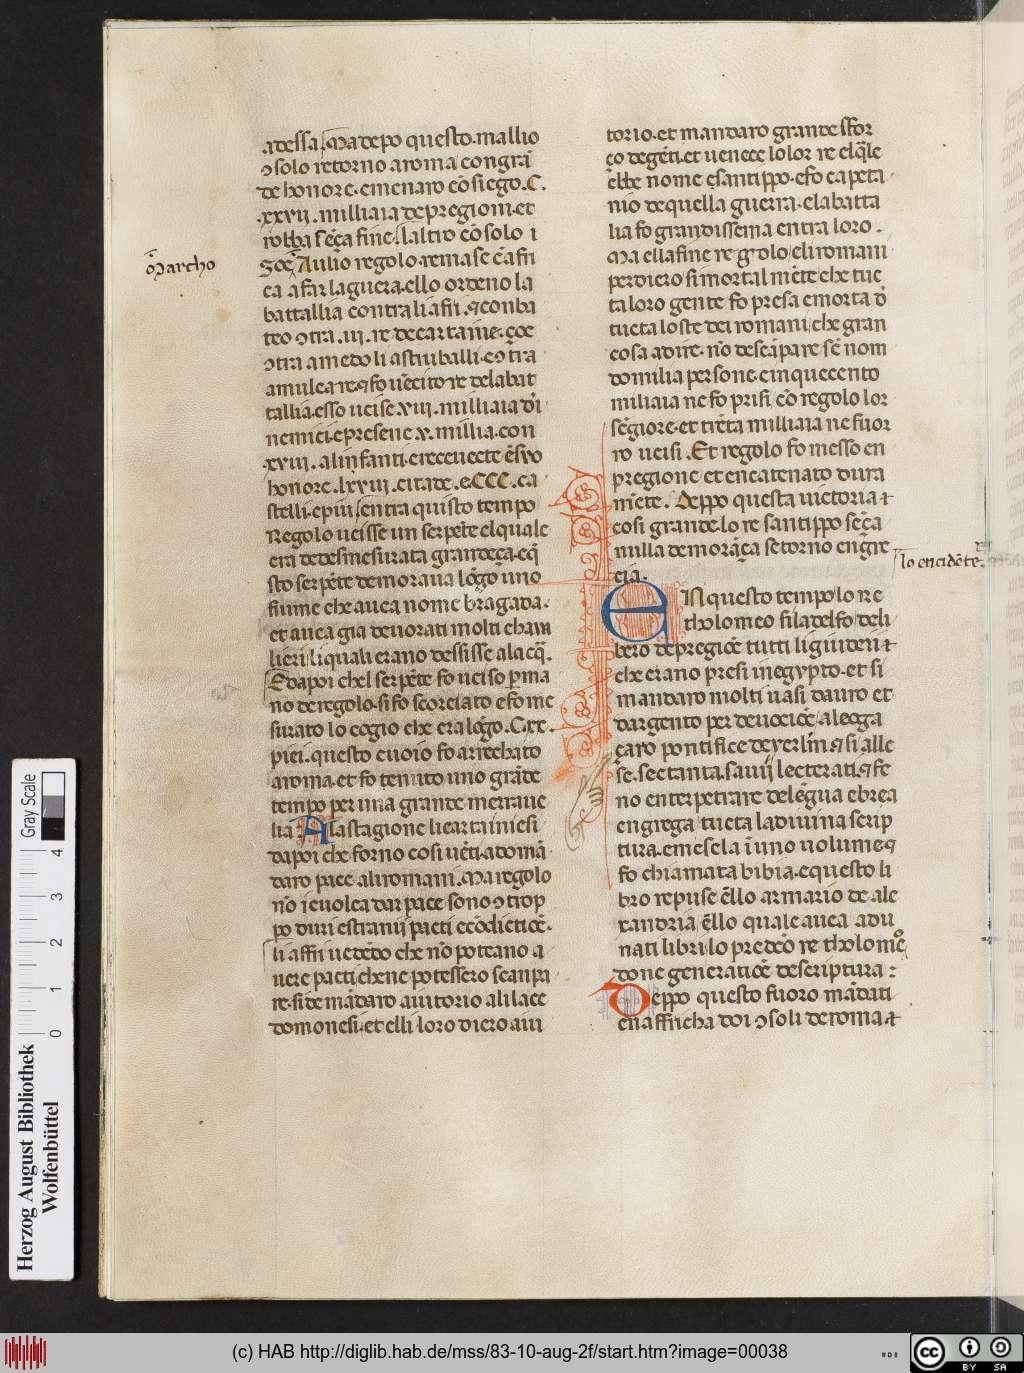 adessa. Ma depo questo. mallio
ↄsolo retorno a roma con grā
de honore. e menaro cō siego. C.
.xxvii. milliaia de pregioni. et
robba sēça fine. laltro cō solo i
Aulio regolo remase ē afri
ca a far la guera. ello ordeno la
battallia contra li afri. ꝯ conba
teo ↄtra .iii. re de cartaīe. çoe
ↄtra amedo li astruballi. e ↄtra
amulcare. ꝯ fo vēcitore de la bat
tallia. esso ucise .xiii. milliaia dī
nemici. e presene .x. millia. con
.xviii. alinfanti. e recevecte ēsvo
honore. lxxiii. citade. e CCC. ca
stelli. e piu. entra quisto tempo
Regolo ucisse un serpēte el quale
era de desmesurata grandeça. e q̄
sto serpēte demorava lōgo uno
fiume che avea nome bragada.
et avea gia devorati molti chava
lieri li quali erano dessisse a la cq̄.
E dapoi chel serpēte fo uciso p mā
no de regolo. si fo scorciato e fo me
surato lo cogio che era lōgo. C.xx.
piei. questo cuoio fo arrechato
a roma. et fo tenuto uno grāde
tempo per una grande merave
lia. A la stagione li cartainiesi
dapoi che forno cosi vēti. adomā
daro pace ali romani. Ma regolo
nō i e volea dar pace sono ↄ trop
po duri estranii pacti e cōdictiōē.
li affri vedēdo che nō poteano a
vere pacti che ne potessero scanpa
re. si de mādaro aiutorio ali lace
domonesi. et elli loro diero aiu
Marcho
torio. et mandaro grande sfor
ço de gēti. et uenece lolor re el q̄le
ebbe nome çsantippo. e fo capeta
nio de quella guerra. e la batta
lia fo grandissema entra loro.
Ma ella fine regolo eli romani
perdiero si mortalmēte che tuc
ta loro gente fo presa e morta d̄
tucta loste dei romani che gran
cosa a dire. nō de scāpare sē nom
do milia persone. cinquecento
miliaia ne fo prisi cō regolo lor
sēgiore. et trēta milliaia ne fuor
ro ucisi. Et regolo fo messo en
pregione et encatenato dura
mēte. Deppo questa victoria ⁊
cosi grande. lo re santippo sēça
nulla demorāça se torno en gre
cia.
lo encidēte
EN questo tempo lo re
tholomeo filadelfo deli
bero de pregiōē tutti li giuderi ⁊
che erano presi in egypto. et si
mandaro molti vasi dauro et
dargento per devociōē a leoga
çaro pontifice de yerlīm ꝯ si alle
se. sectanta. savii lecterati. ꝯ fe
no enterpetrare de lēgua ebrea
en grega tucta la divina scrip
tura. e mesela ī uno volume. ꝯ
fo chiamata bibia. e questo li
bro repuse ēllo armario de ale
xandria ēllo quale avea adu
nati libri. lo predcō re tholomeo
done generatiōē descriptura:
Deppo questo fuoro mādati
en affricha doi ↄsoli de roma ⁊
Gray Scale
0 1 2 3 4
Herzog August Bibliothek
Wolfenbüttel
(c) HAB http://diglib.hab.de/mss/83-10-aug-2f/start.htm?image=00038
cc BY SA